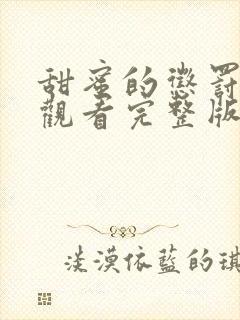 甜蜜的懲罰
觀看完整版
淡漠依藍的琪